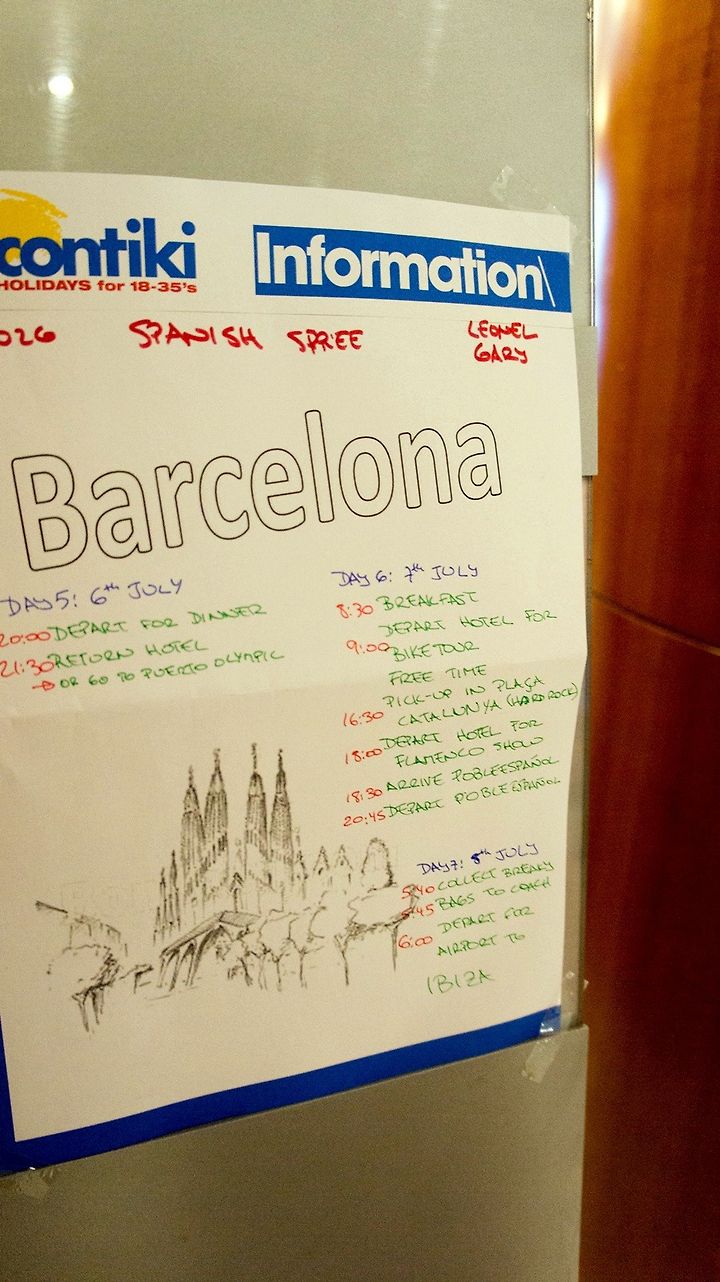 contiki
HOLIDAYS for 18-35's
Information
026 SPANISH SPREE LEONEL
GARY
Barcelona
DAY 5: 6th JULY
20:00 DEPART FOR DINNER
21:30 RETURN HOTEL
→ OR GO TO PUERTO OLYMPIC
DAY 6: 7th JULY
8:30 BREAKFAST
DEPART HOTEL FOR
9:00 BIKE TOUR
FREE TIME
PICK-UP IN PLAÇA
16:30 CATALUNYA (HARDROCK)
18:00 DEPART HOTEL FOR
FLAMENCO SHOW
18:30 ARRIVE POBLE ESPAÑOL
20:45 DEPART POBLE ESPAÑOL
DAY 7: 8th JULY
5:40 COLLECT BREAKY
5:45 BAGS TO COACH
6:00 DEPART FOR
AIRPORT TO
IBIZA